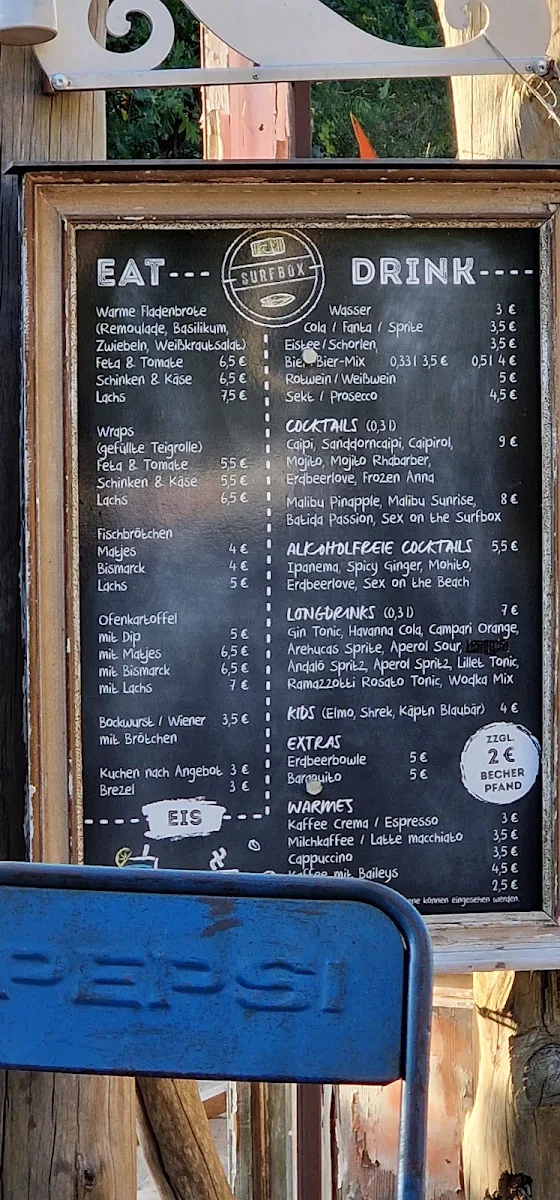 EAT---
SURFBOX
DRINK----
Warme Fladenbrote
(Remoulade, Basilikum,
Zwiebeln, Weißkrautsalat)
Feta & Tomate 6,5 €
Schinken & Käse 6,5 €
Lachs 7,5 €
Wraps
(gefüllte Teigrolle)
Feta & Tomate 5,5 €
Schinken & Käse 5,5 €
Lachs 6,5 €
Fischbrötchen
Matjes 4 €
Bismarck 4 €
Lachs 5 €
Ofenkartoffel
mit Dip 5 €
mit Matjes 6,5 €
mit Bismarck 6,5 €
mit Lachs 7 €
Bockwurst / Wiener 3,5 €
mit Brötchen
Kuchen nach Angebot 3 €
Brezel 3 €
EIS
Wasser 3 €
Cola / Fanta / Sprite 3,5 €
Eistee / Schorlen 3,5 €
Bier Bier-Mix 0,33 l 3,5 € 0,5 l 4 €
Rotwein / Weißwein 5 €
Sekt / Prosecco 4,5 €
COCKTAILS (0,3 l)
Caipi, Sanddorncaipi, Caipirol, 9 €
Mojito, Mojito Rhabarber,
Erdbeerlove, Frozen Anna
Malibu Pinapple, Malibu Sunrise, 8 €
Batida Passion, Sex on the Surfbox
ALKOHOLFREIE COCKTAILS 5,5 €
Ipanema, Spicy Ginger, Mohito,
Erdbeerlove, Sex on the Beach
LONGDRINKS (0,3 l) 7 €
Gin Tonic, Havanna Cola, Campari Orange,
Arehucas Sprite, Aperol Sour,
Andalö Spritz, Aperol Spritz, Lillet Tonic,
Ramazzotti Rosato Tonic, Wodka Mix
KIDS (Elmo, Shrek, Käptn Blaubär) 4 €
EXTRAS
Erdbeerbowle 5 €
Baraquito 5 €
ZZGL.
2 €
BECHER
PFAND
WARMES
Kaffee Crema / Espresso 3 €
Milchkaffee / Latte macchiato 3,5 €
Cappuccino 3,5 €
Kaffee mit Baileys 4,5 €
2,5 €
können eingesehen werden.
PEPSI